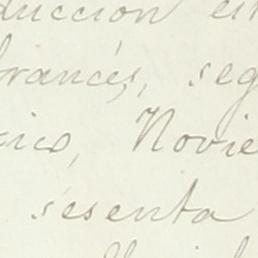 ducción en
francés, seg
xico, Novie
sesenta